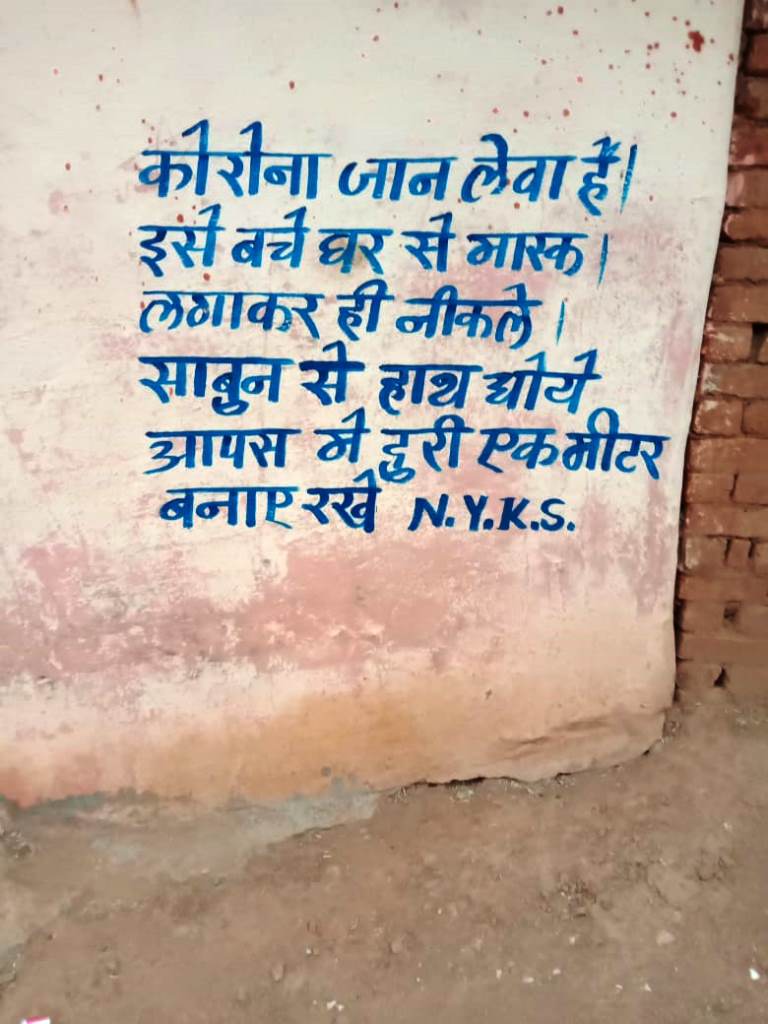 कोरोना जान लेवा हैं।
इसे बचे घर से मास्क।
लगाकर ही नीकले।
साबुन से हाथ धोये
आपस मे दुरी एक मीटर
बनाए रखे N.Y.K.S.